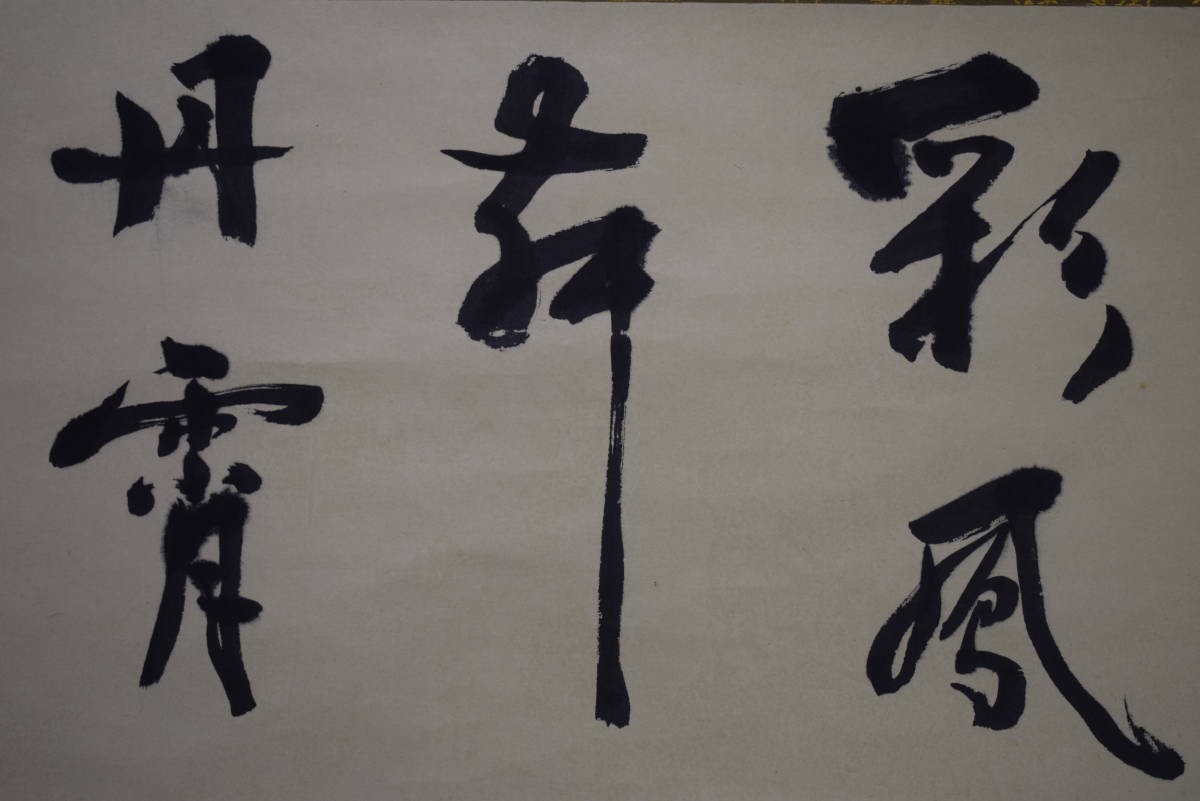 彩鳳
舞
丹霄